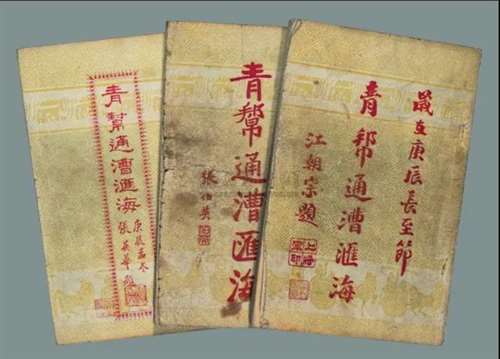 青幫通漕匯海
庚辰孟冬
張英華題
青幫通漕匯海
張伯英
歲在庚辰長至節
青幫通漕匯海
江朝宗題